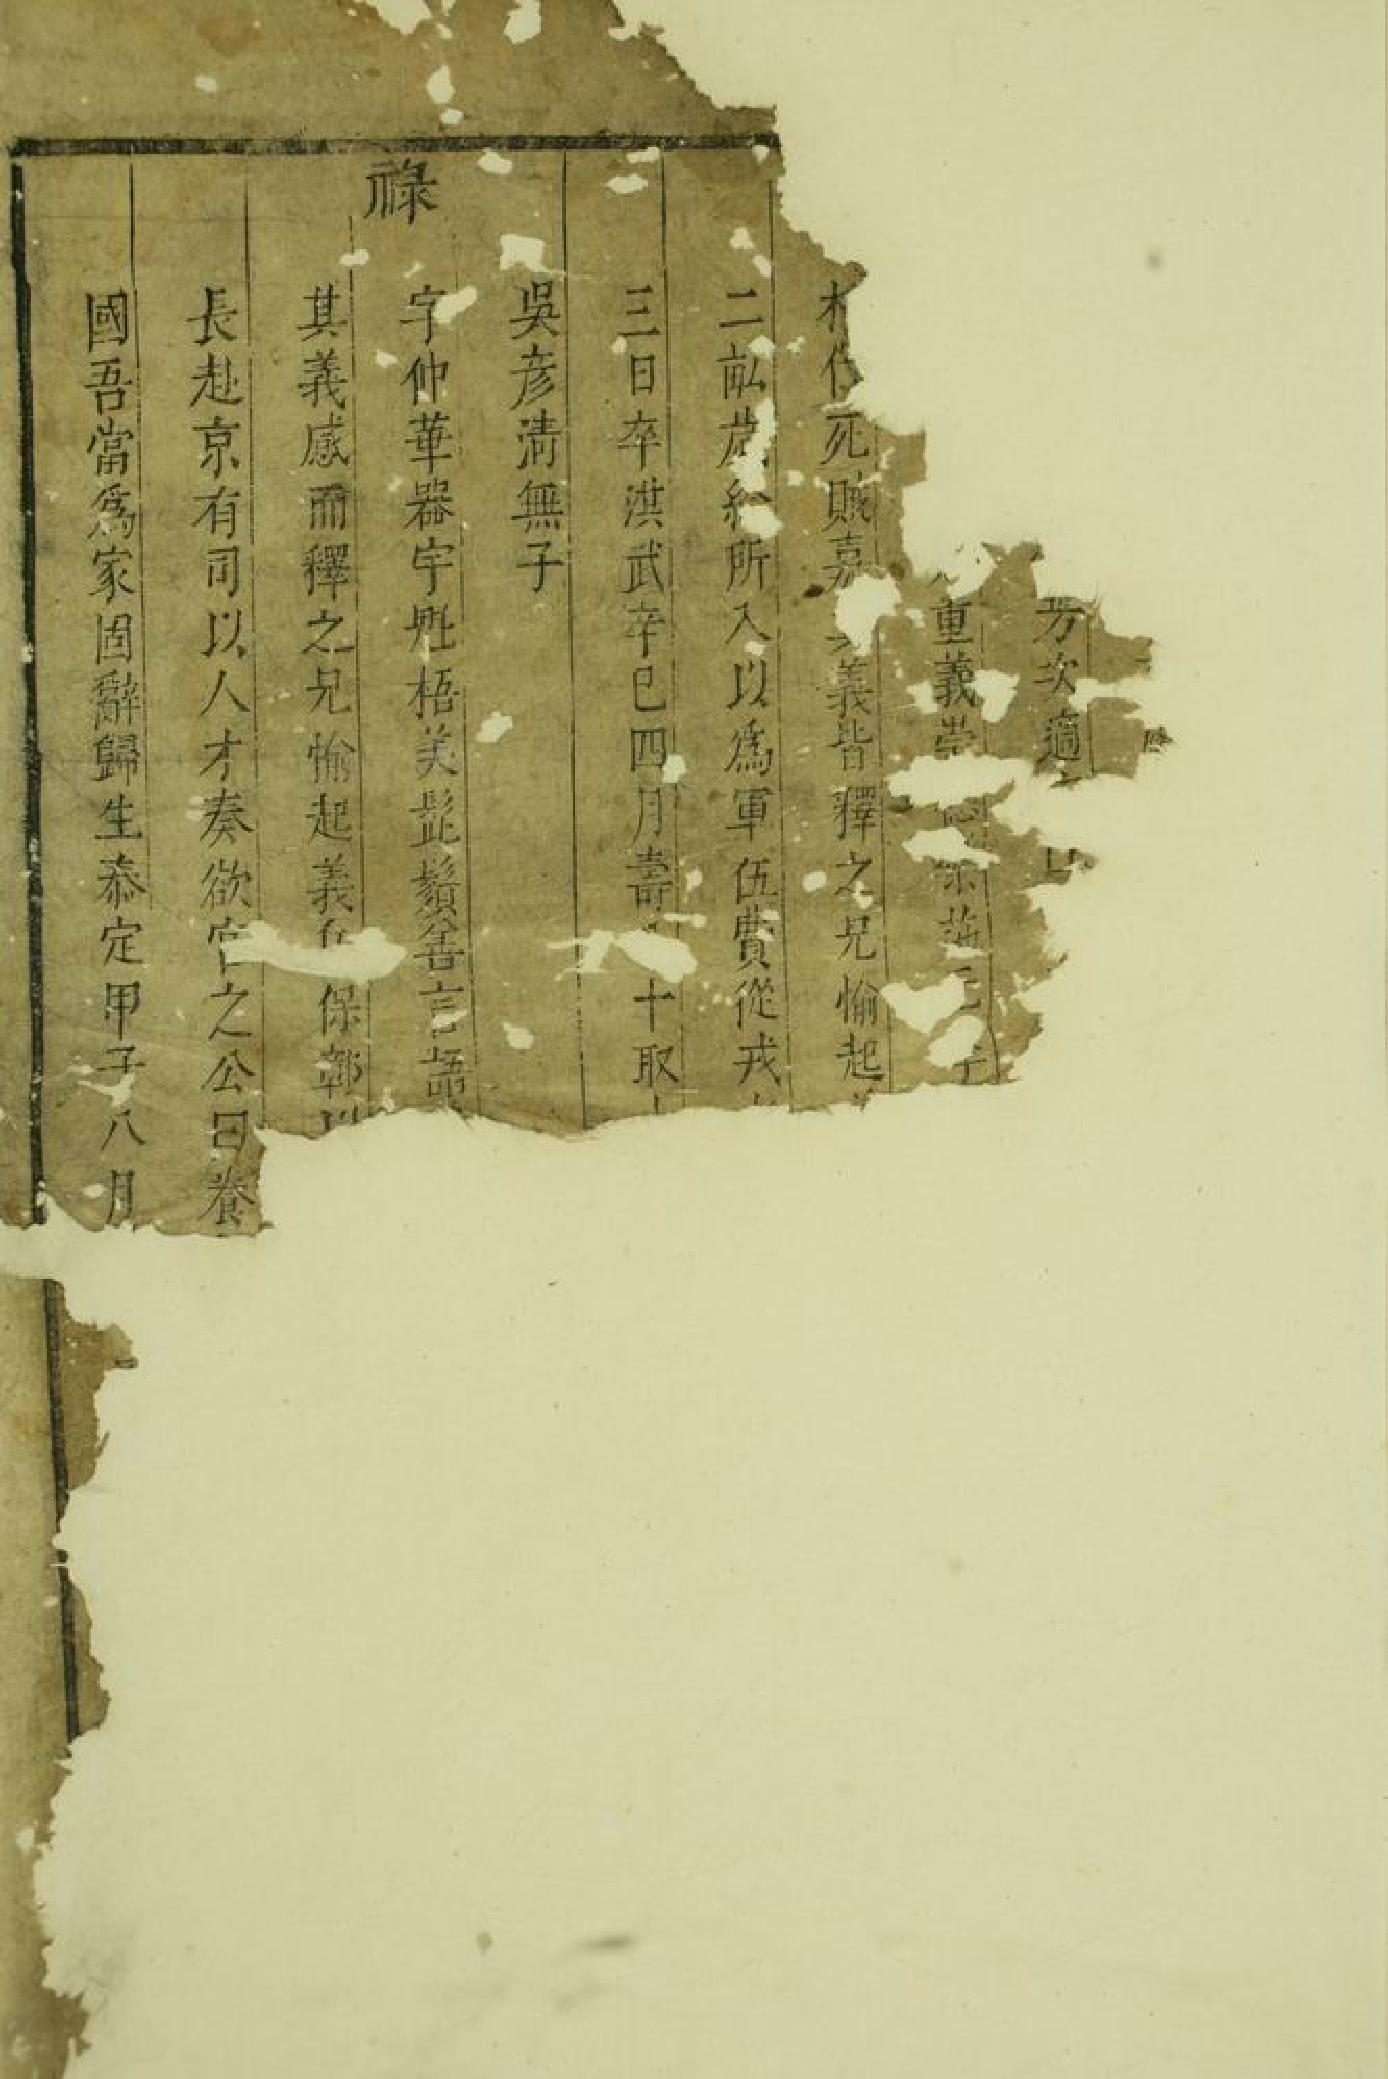 芳次適
重義
死賊嘉義皆釋之兄愉起
二畝歲所入以爲軍伍費從戎
三日卒洪武辛巳四月壽十取
吳彦清無子
祿
字仲華器宇魁梧美髭鬚善言語
其義感而釋之兄愉起義保鄣以
長赴京有司以人才奏欲官之公曰養
國吾當爲家固辭歸生泰定甲子八月